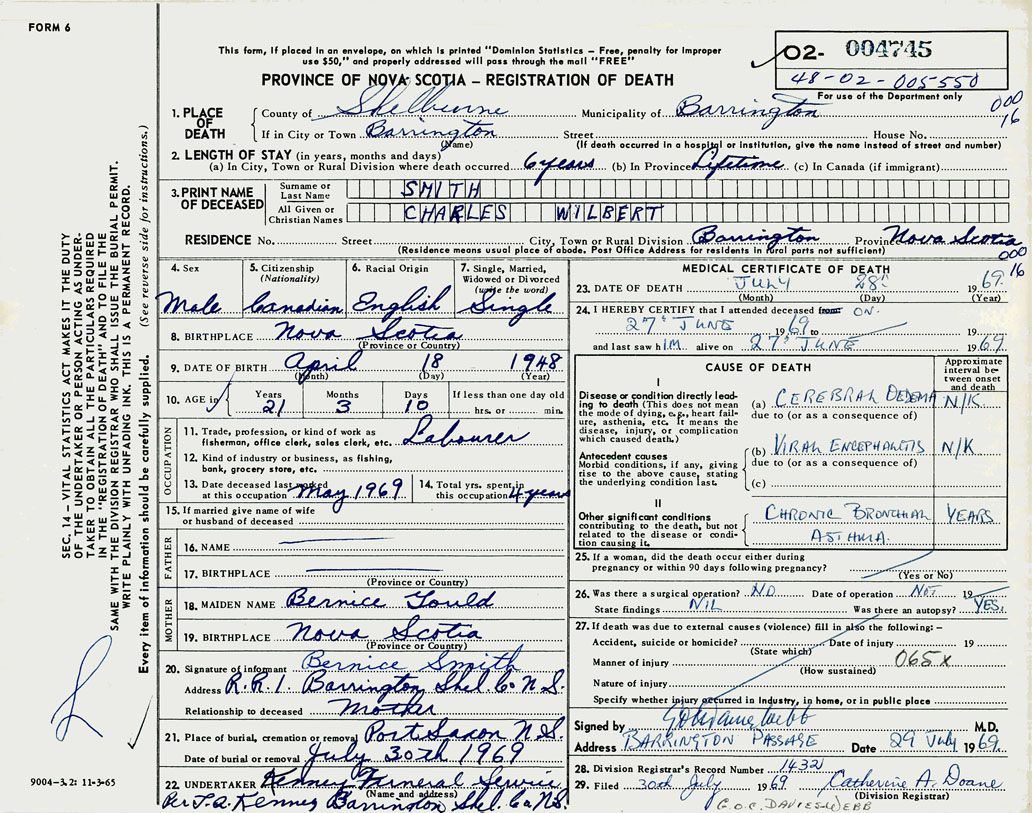 FORM 6
This form, if placed in an envelope, on which is printed "Dominion Statistics – Free, penalty for improper
use $50," and properly addressed will pass through the mail "FREE"
O2- 004745
48-02-005550
For use of the Department only
PROVINCE OF NOVA SCOTIA – REGISTRATION OF DEATH
000
16
1. PLACE OF DEATH
County of Shelburne Municipality of Barrington
If in City or Town Barrington Street House No.
(Name) (If death occurred in a hospital or institution, give the name instead of street and number)
2. LENGTH OF STAY (in years, months and days)
(a) In City, Town or Rural Division where death occurred 6 years (b) In Province Lifetime (c) In Canada (if immigrant)
3. PRINT NAME OF DECEASED
Surname or Last Name SMITH
All Given or Christian Names CHARLES WILBERT
RESIDENCE No. Street City, Town or Rural Division Barrington Province Nova Scotia
(Residence means usual place of abode. Post Office Address for residents in rural parts not sufficient)
000
16
4. Sex
Male
5. Citizenship
(Nationality)
Canadian
6. Racial Origin
English
7. Single, Married,
Widowed or Divorced
(write the word)
Single
8. BIRTHPLACE Nova Scotia
(Province or Country)
9. DATE OF BIRTH April 18 1948
(Month) (Day) (Year)
10. AGE in
Years Months Days If less than one day old
21 3 10 hrs. or min.
OCCUPATION
11. Trade, profession, or kind of work as
fisherman, office clerk, sales clerk, etc. Labourer
12. Kind of industry or business, as fishing,
bank, grocery store, etc.
13. Date deceased last worked
at this occupation May 1969
14. Total yrs. spent in
this occupation 4 years
15. If married give name of wife
or husband of deceased
FATHER
16. NAME
17. BIRTHPLACE
(Province or Country)
MOTHER
18. MAIDEN NAME Bernice Gould
19. BIRTHPLACE Nova Scotia
(Province or Country)
20. Signature of informant Bernice Smith
Address R.R.1. Barrington, Shel. Co N.S.
Relationship to deceased Mother
21. Place of burial, cremation or removal Port Saxon N.S.
Date of burial or removal July 30th 1969
22. UNDERTAKER Kenney Funeral Service
(Name and address)
Per J.A. Kenney Barrington Shel. Co. N.S.
MEDICAL CERTIFICATE OF DEATH
23. DATE OF DEATH JULY 28th 1969
(Month) (Day) (Year)
24. I HEREBY CERTIFY that I attended deceased from ON
27th JUNE 1969 to 19
and last saw h IM. alive on 27th JUNE 1969
CAUSE OF DEATH
Approximate
interval be-
tween onset
and death
I
Disease or condition directly lead-
ing to death (This does not mean
the mode of dying, e.g., heart fail-
ure, asthenia, etc. It means the
disease, injury, or complication
which caused death.)
(a) CEREBRAL OEDEMA N/K
due to (or as a consequence of)
Antecedent causes
Morbid conditions, if any, giving
rise to the above cause, stating
the underlying condition last.
(b) VIRAL ENCEPHALITIS N/K
due to (or as a consequence of)
(c)
II
Other significant conditions
contributing to the death, but not
related to the disease or condi-
tion causing it.
CHRONIC BRONCHIAL YEARS
ASTHMA.
25. If a woman, did the death occur either during
pregnancy or within 90 days following pregnancy?
(Yes or No)
26. Was there a surgical operation? NO Date of operation NOT 19
State findings NIL Was there an autopsy? YES.
27. If death was due to external causes (violence) fill in also the following: –
Accident, suicide or homicide? Date of injury 19
(State which)
Manner of injury 065x
(How sustained)
Nature of injury
Specify whether injury occurred in industry, in home, or in public place
Signed by M.D.
Address BARRINGTON PASSAGE Date 29 July 1969.
28. Division Registrar's Record Number 1432
29. Filed 30th July 1969 Catherine A. Doane
(Division Registrar)
G.O.C. DAVIES-WEBB
SEC. 14 – VITAL STATISTICS ACT MAKES IT THE DUTY
OF THE UNDERTAKER OR PERSON ACTING AS UNDER-
TAKER TO OBTAIN ALL THE PARTICULARS REQUIRED
IN THE "REGISTRATION OF DEATH" AND TO FILE THE
SAME WITH THE DIVISION REGISTRAR WHO SHALL ISSUE THE BURIAL PERMIT.
WRITE PLAINLY WITH UNFADING INK. THIS IS A PERMANENT RECORD.
Every item of information should be carefully supplied. (See reverse side for instructions.)
9004-3.2: 11-3-65